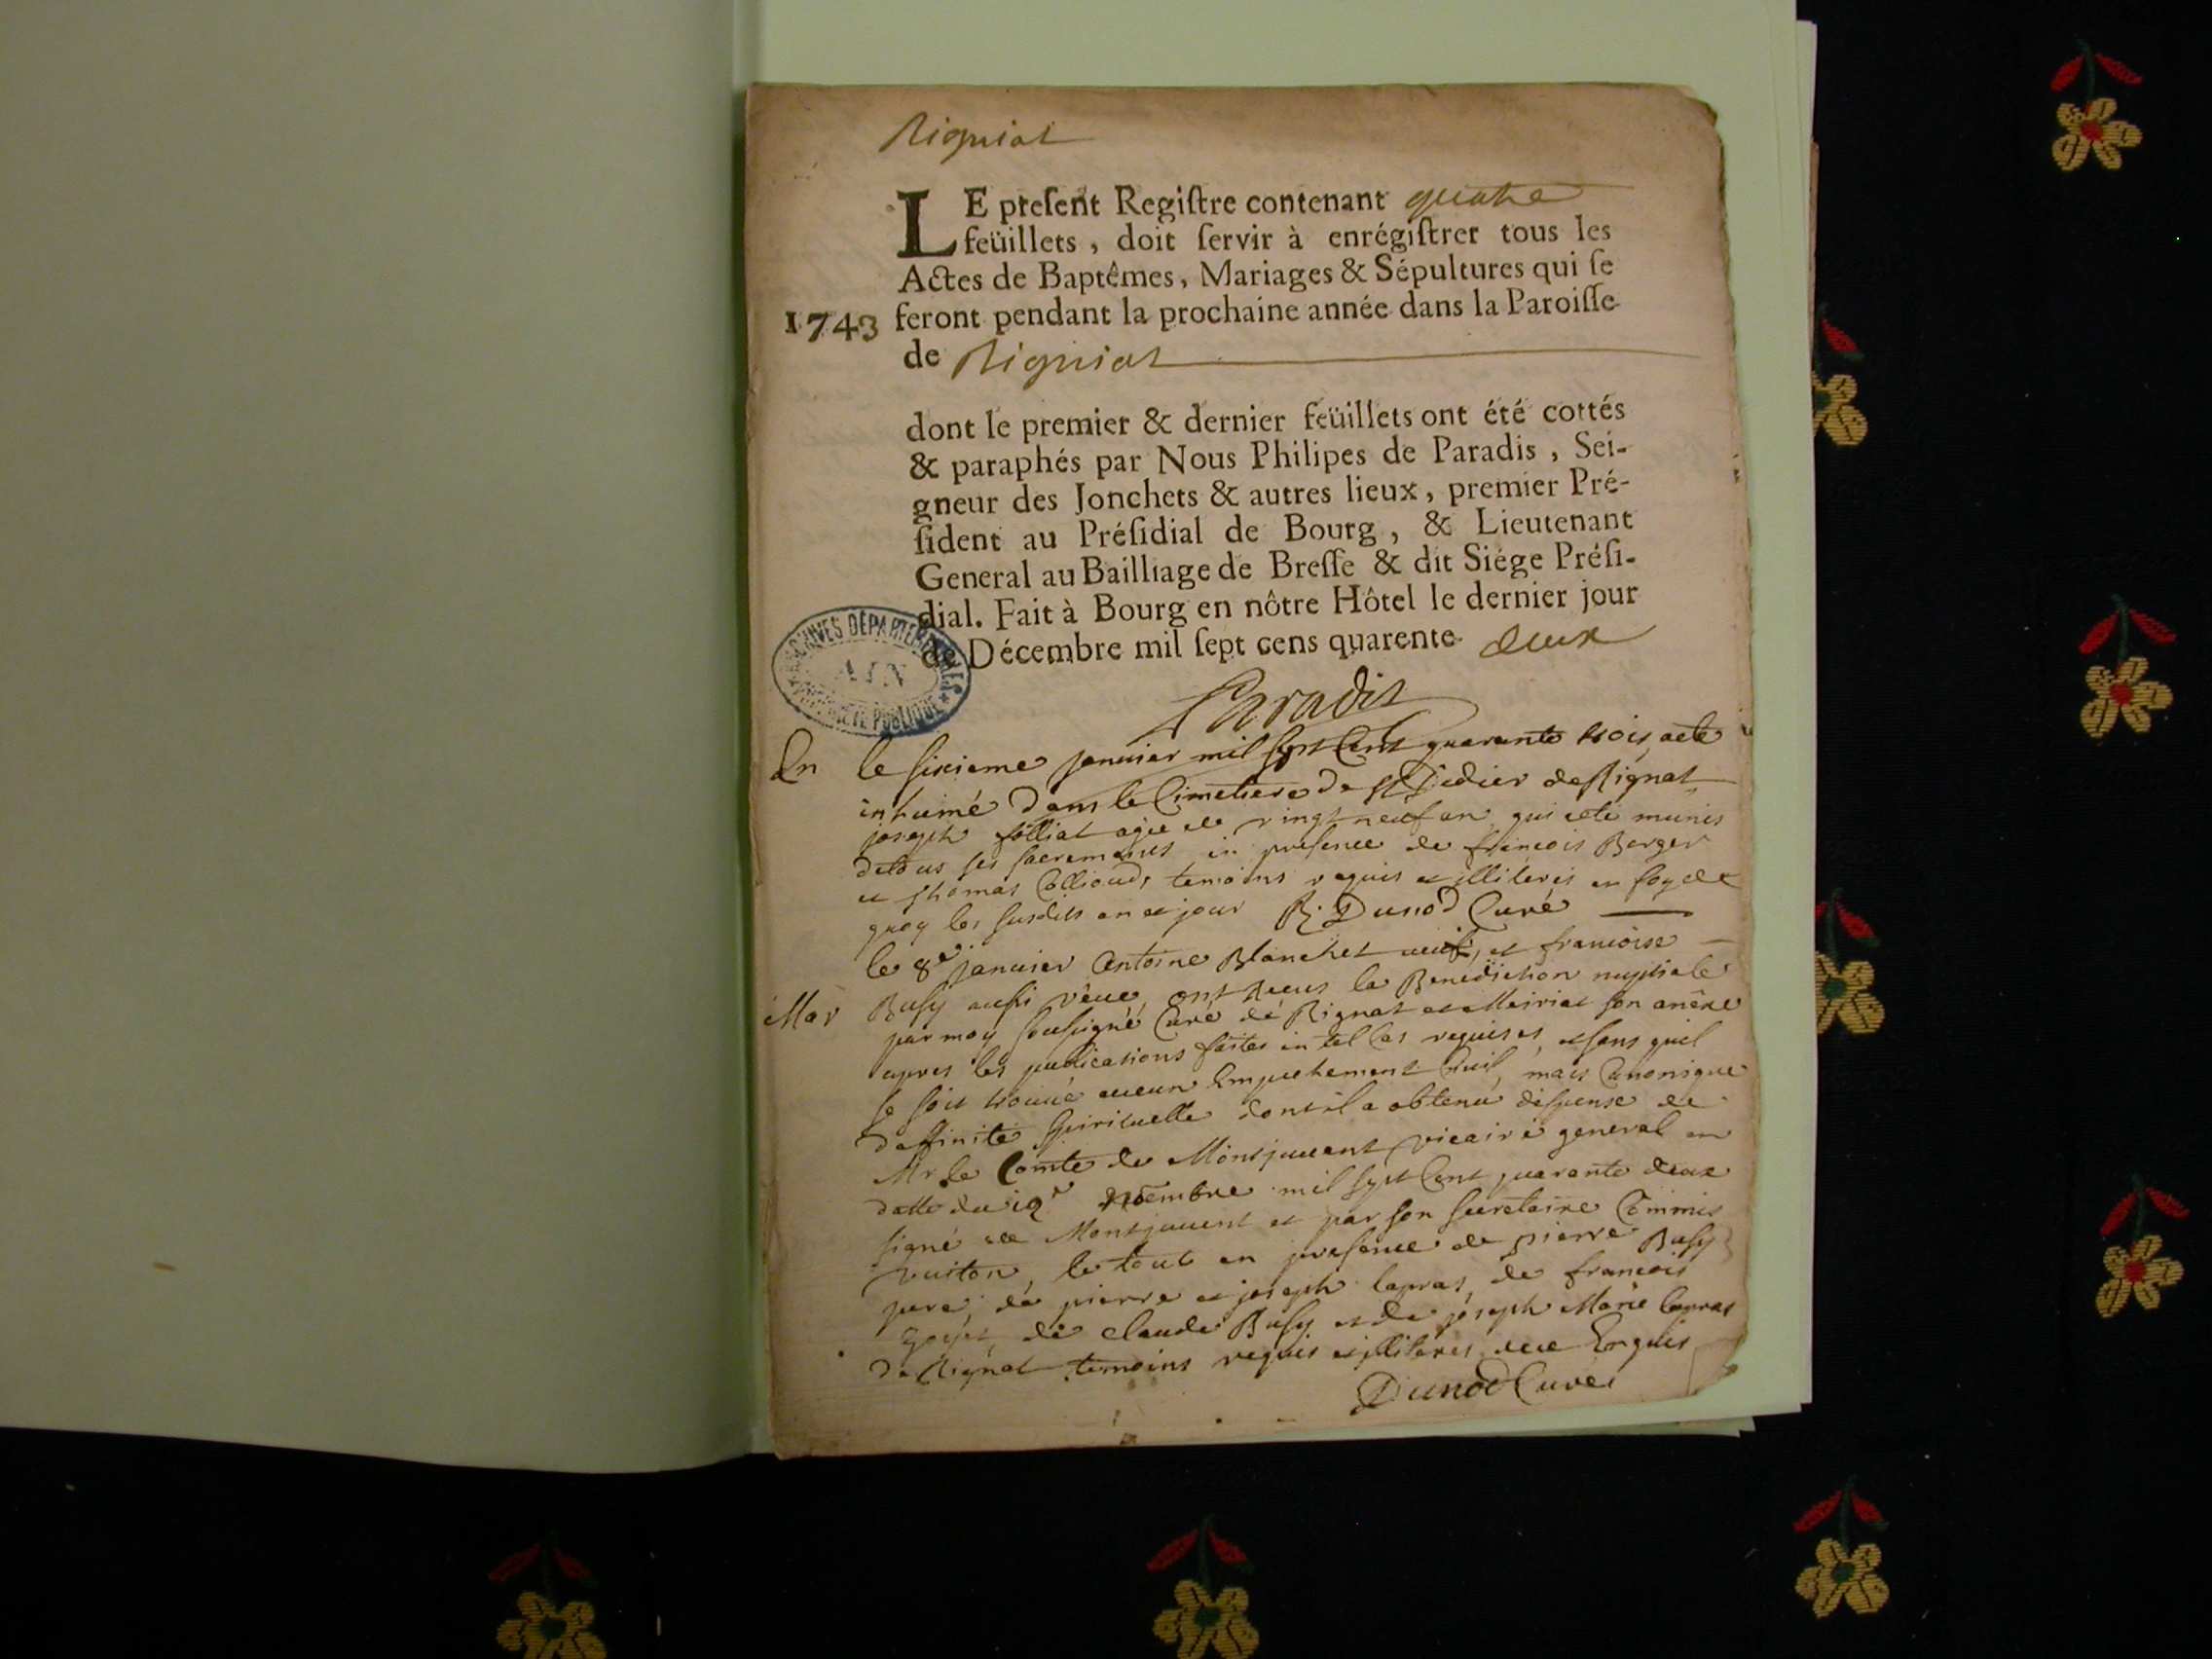 Rigniat
LE preſent Regiſtre contenant quatre
feüillets, doit ſervir à enrégiſtrer tous les
Actes de Baptêmes, Mariages & Sépultures qui ſe
1743 feront pendant la prochaine année dans la Paroiſſe
de Rigniat
dont le premier & dernier feüillets ont été cottés
& paraphés par Nous Philipes de Paradis, Sei-
gneur des Jonchets & autres lieux, premier Pré-
ſident au Préſidial de Bourg, & Lieutenant
General au Bailliage de Breſſe & dit Siége Préſi-
dial. Fait à Bourg en nôtre Hôtel le dernier jour
de Décembre mil ſept cens quarente deux
ARCHIVES DÉPARTEMENTALES
AIN
PROPRIÉTÉ PUBLIQUE
Paradis
En le sixieme janvier mil sept Cent quarante trois, aeté
inhumé dans le Cimetiere de St Didier de Rignat
joseph folliat agée de vingt neuf an qui aeté munis
detous ses sacremants en presence de francois Berger
et thomas Colliouds temoins requis et illiterés en foy de
quoy les susdits an et jour R. Dunod Curé
le 8e janvier Antoine Blanchet veuf, et francoise
Mar Busy aussi véue, ont receus la Benediction nuptiale
par moy soussigné Curé de Rignat et Meiriat son anéxe
apres les publications faites en tel Cas requises, et sans quil
se soit trouvé aucun Empechement Civil, mais Canonique
daffinité spirituelle dont il a obtenu dispense de
Mr le Comte de Montjuvent vicaire general en
datte du 19e Novembre mil sept Cent quarante deux
signé de Montjuvent et par son secretaire Commis
vuiton, le tout en presence de pierre Busy
pere, de pierre et joseph lapras, de francois
de claude Busy et de joseph Marie lapras
de Rignat temoins requis et illiterés de ce Enquis
Dunod Curé